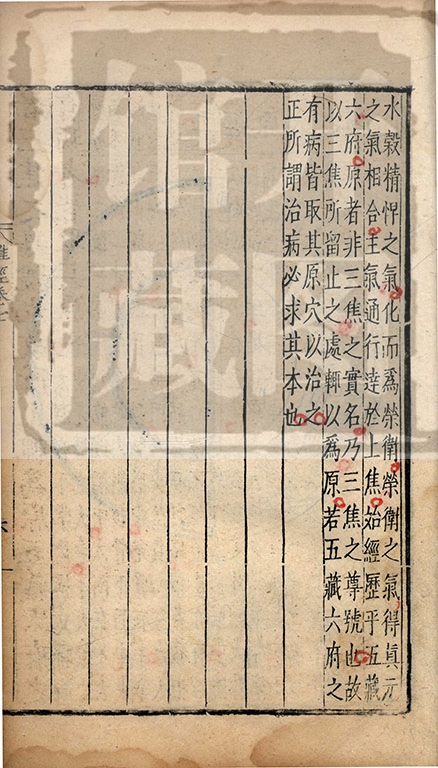 水穀精悍之氣化而為榮衛榮衛之氣得真元
之氣相合主氣通行達於上焦始經歷乎五藏
六府原者非三焦之實名乃三焦之尊號也故
以三焦所留止之處輒以為原若五藏六府之
有病皆取其原穴以治之
正所謂治病必求其本也